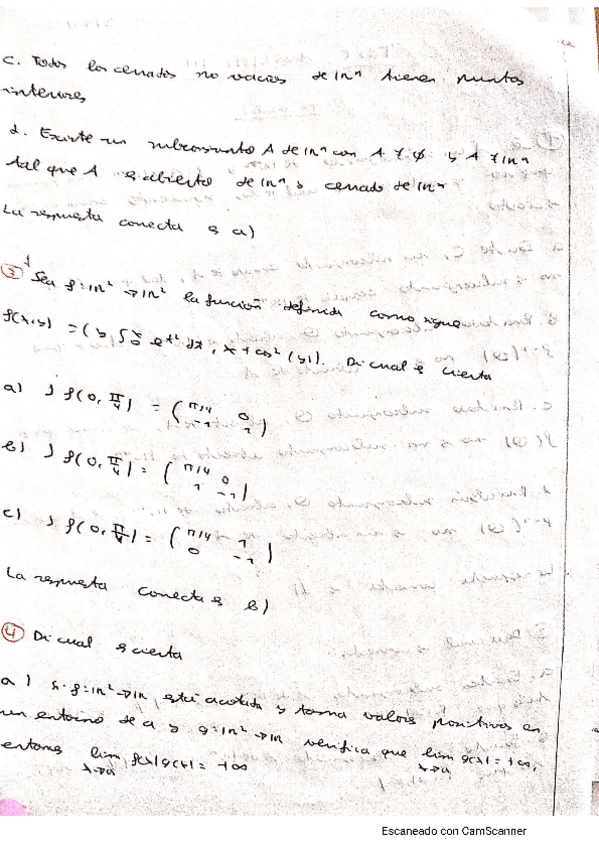 c. Todos los cerrados no vacios de IRⁿ tienen puntos
interiores
d. Existe un subconjunto A de IRⁿ con A ≠ ∅ y A ≠ IRⁿ
tal que A es abierto de IRⁿ y cerrado de IRⁿ
La respuesta correcta es a)
③ Sea f: IR² → IR² la función definida como sigue
f(x,y) = (y ∫₀ˣ e^t² dt, x + cos²(y)). Di cual es cierta
a) J f(0, π/4) = (π/4 0
-1 1)
b) J f(0, π/4) = (π/4 0
1 -1)
c) J f(0, π/4) = (π/4 1
0 -1)
La respuesta correcta es b)
④ Di cual es cierta
a) Si f: IR² → IR está acotada y toma valores positivos en
un entorno de a y g: IR² → IR verifica que lim g(x) = +∞,
x→a
entonces lim f(x)g(x) = +∞
x→a
Escaneado con CamScanner